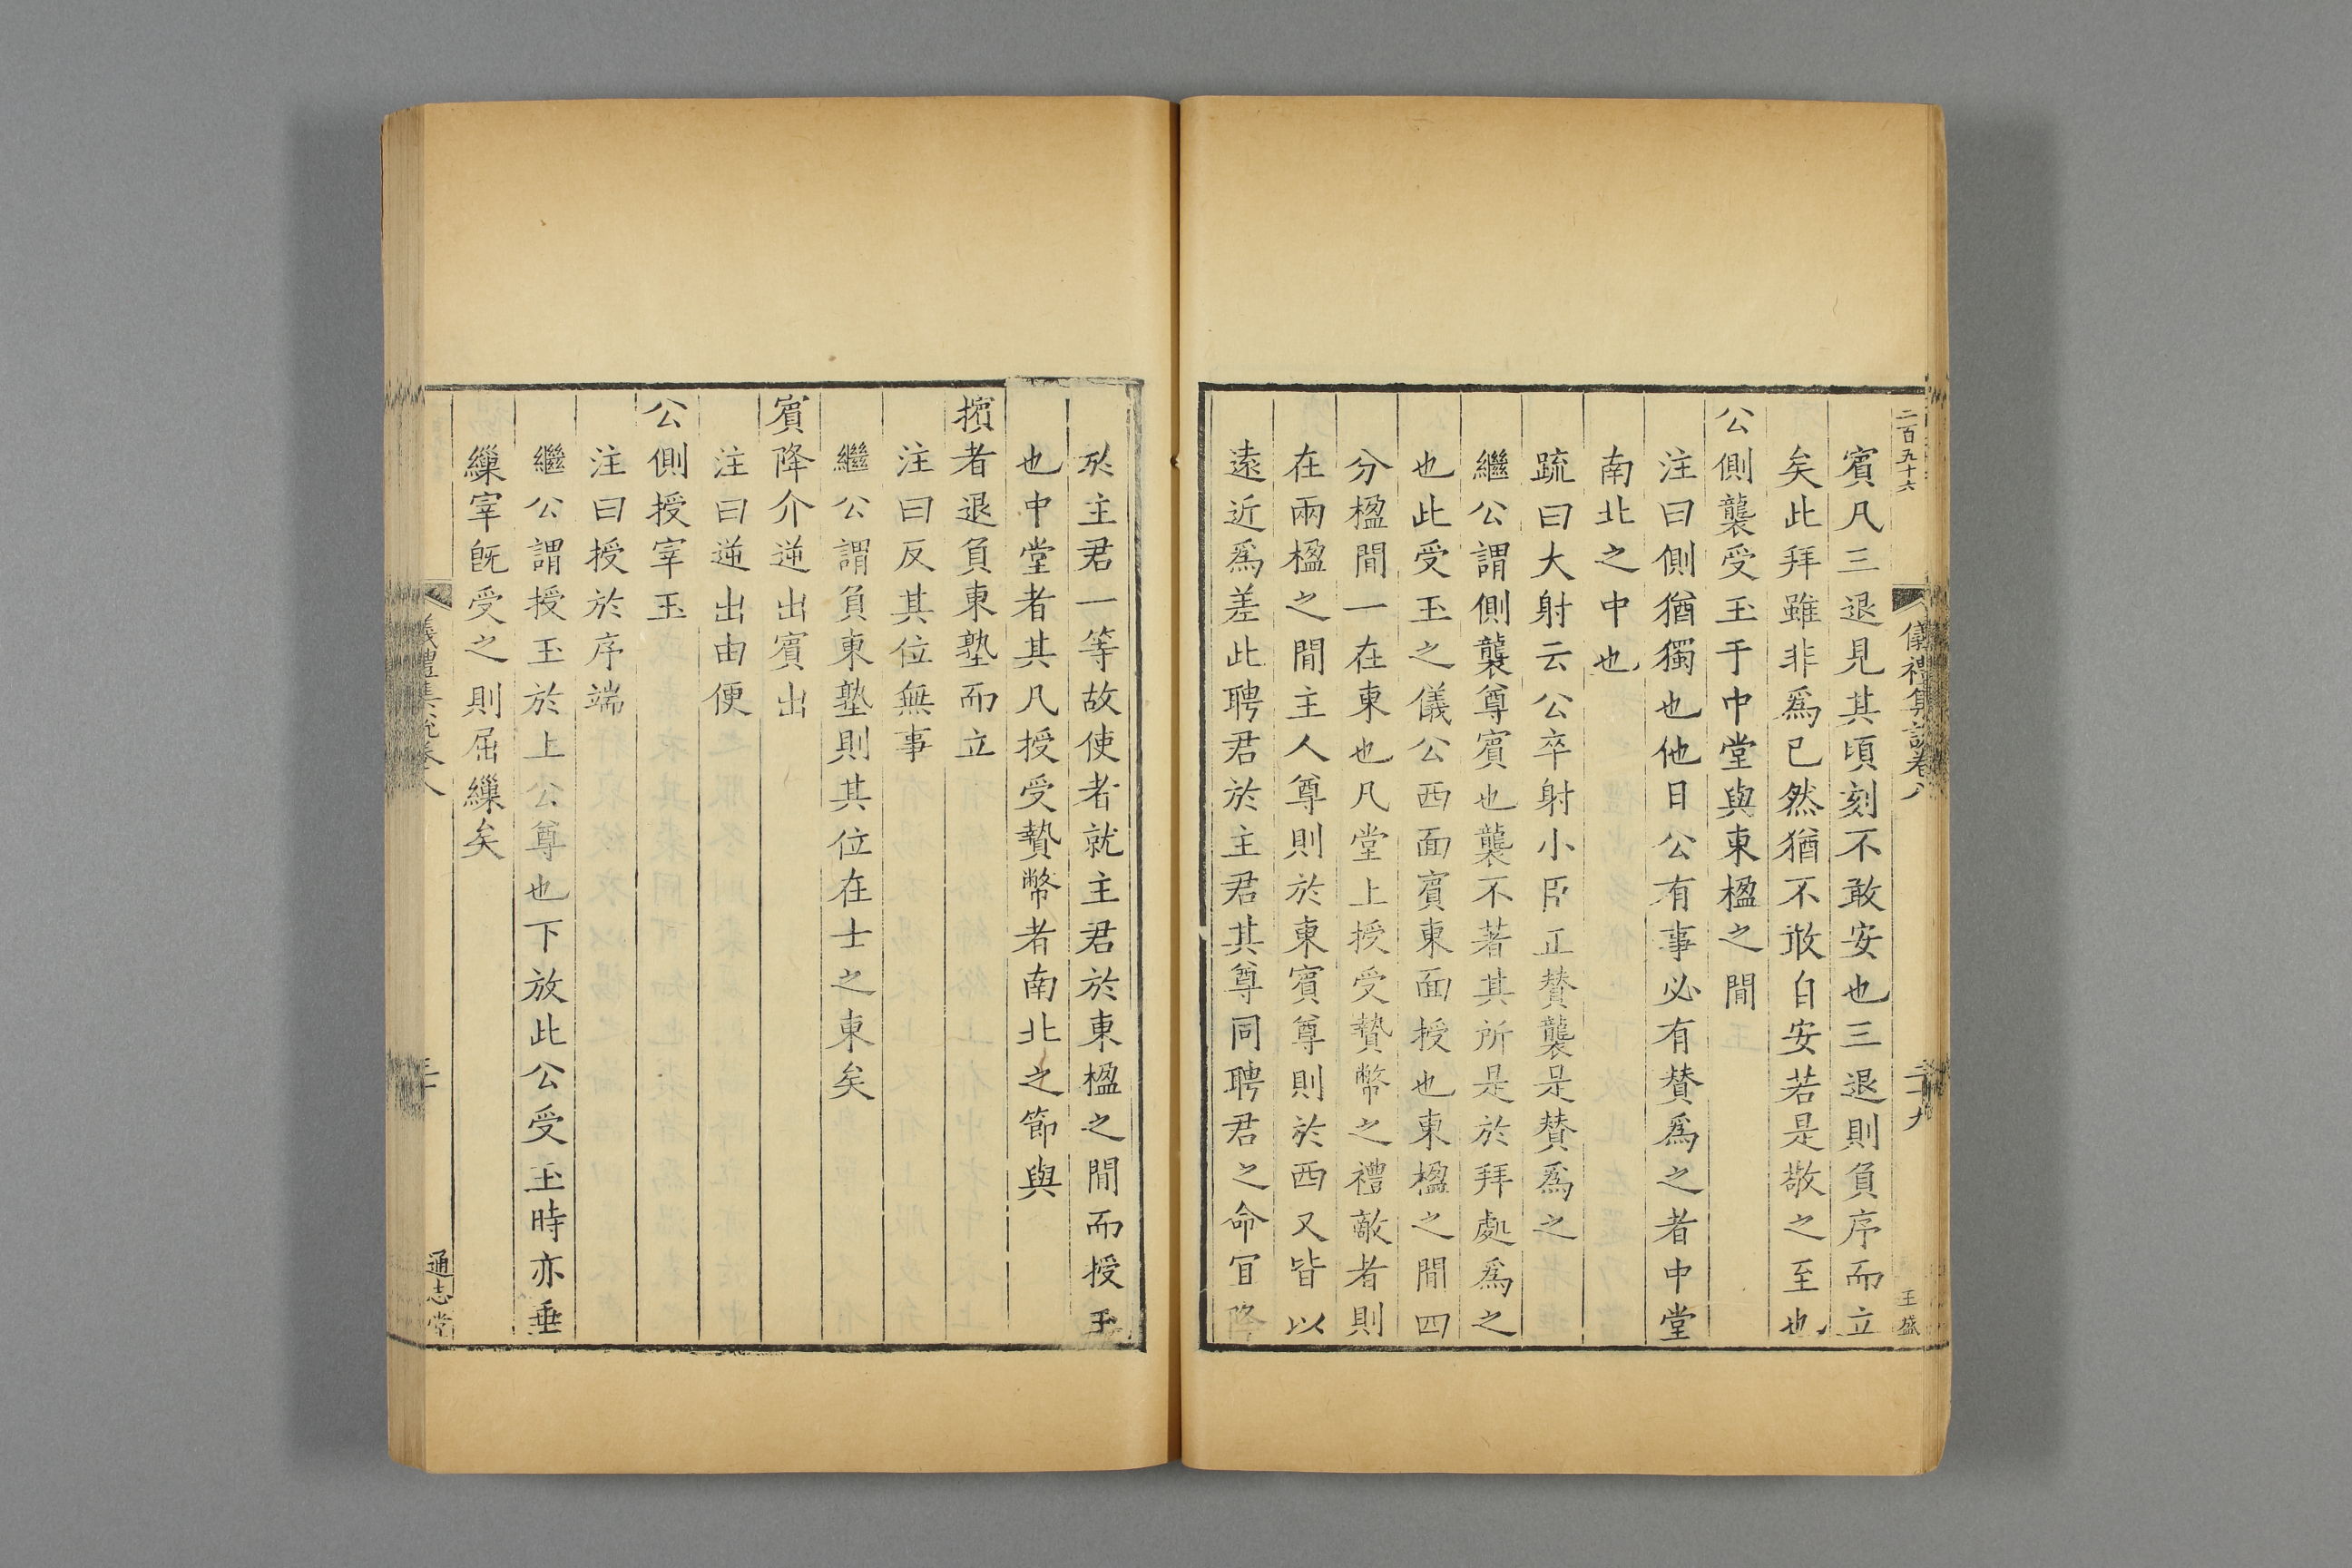 二百五十六
儀禮集說卷八
二十九
王盛
賓凡三退見其頃刻不敢安也三退則負序而立
矣此拜雖非爲已然猶不敢自安若是敬之至也
公側襲受玉于中堂與東楹之間
注曰側猶獨也他日公有事必有賛爲之者中堂
南北之中也
疏曰大射云公卒射小臣正賛襲是賛爲之
繼公謂側襲尊賓也襲不著其所是於拜處爲之
也此受玉之儀公西面賓東面授也東楹之間四
分楹間一在東也凡堂上授受贄幣之禮敵者則
在兩楹之間主人尊則於東賓尊則於西又皆以
遠近爲差此聘君於主君其尊同聘君之命宜降
於主君一等故使者就主君於東楹之間而授玉
也中堂者其凡授受贄幣者南北之節與
擯者退負東塾而立
注曰反其位無事
繼公謂負東塾則其位在士之東矣
賓降介逆出賓出
注曰逆出由便
公側授宰玉
注曰授於序端
繼公謂授玉於上公尊也下放此公受玉時亦垂
繅宰旣受之則屈繅矣
儀禮集說卷八
三十
通志堂